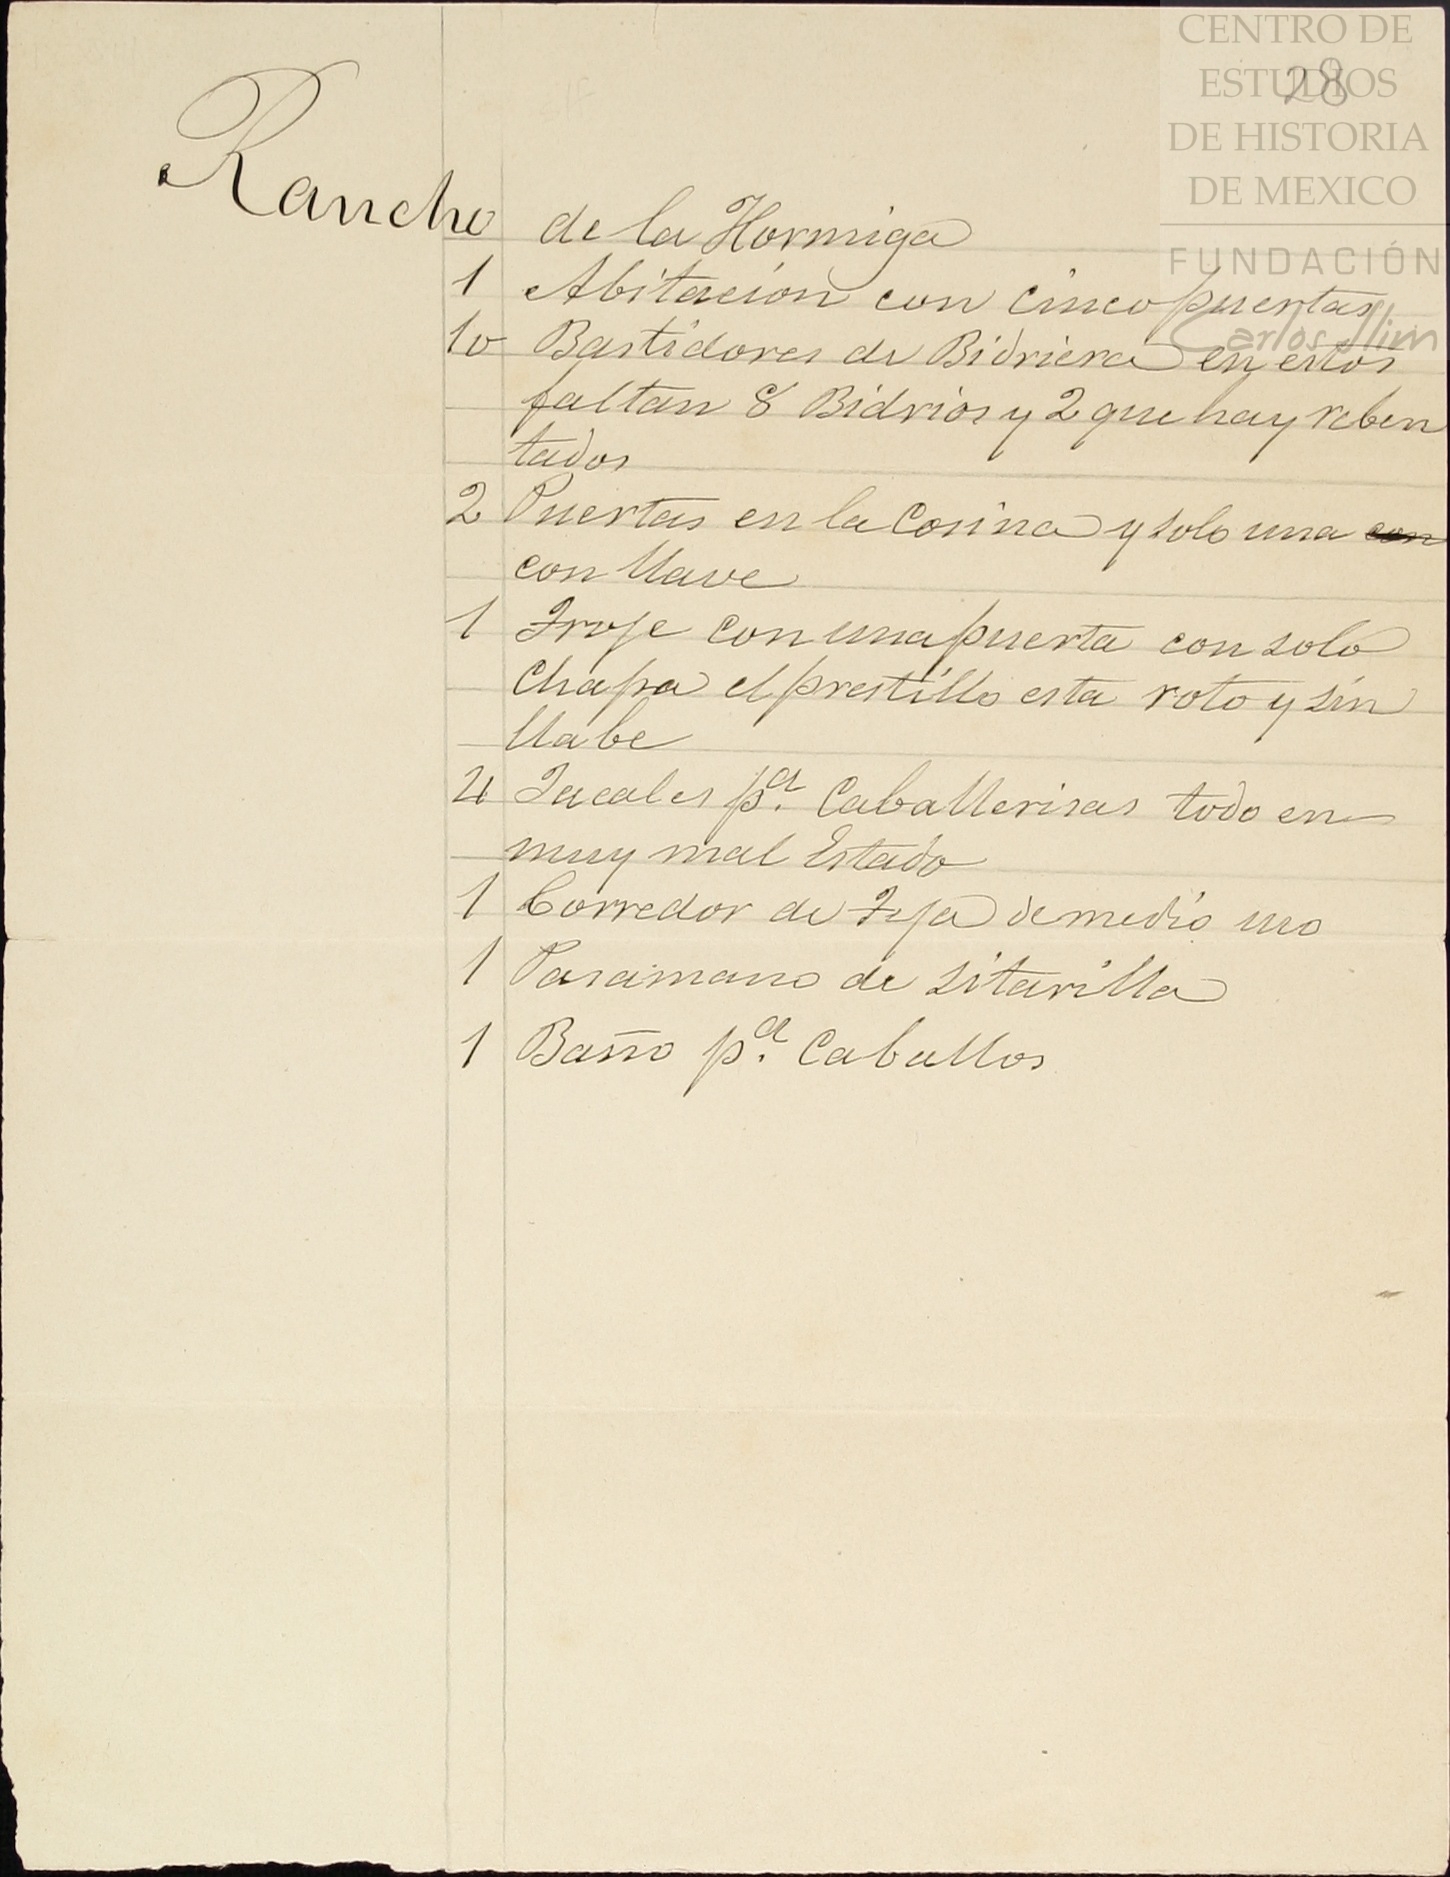 CENTRO DE
ESTUDIOS
DE HISTORIA
DE MEXICO
FUNDACIÓN
Carlos Slim
28
Rancho de la Hormiga
1 Abitacion con cinco puertas
10 Bastidores de Bidriera en estos
faltan 8 Bidrios y 2 que hay reben
tados
2 Puertas en la Cosina y solo una con
con llave
1 Troje con una puerta con solo
Chapa el prestillo esta roto y sin
llabe
4 Jacales pª. Caballerisas todo en
muy mal Estado
1 Corredor de Teja de medio uso
1 Pasamano de sitarilla
1 Baño pª. Caballos